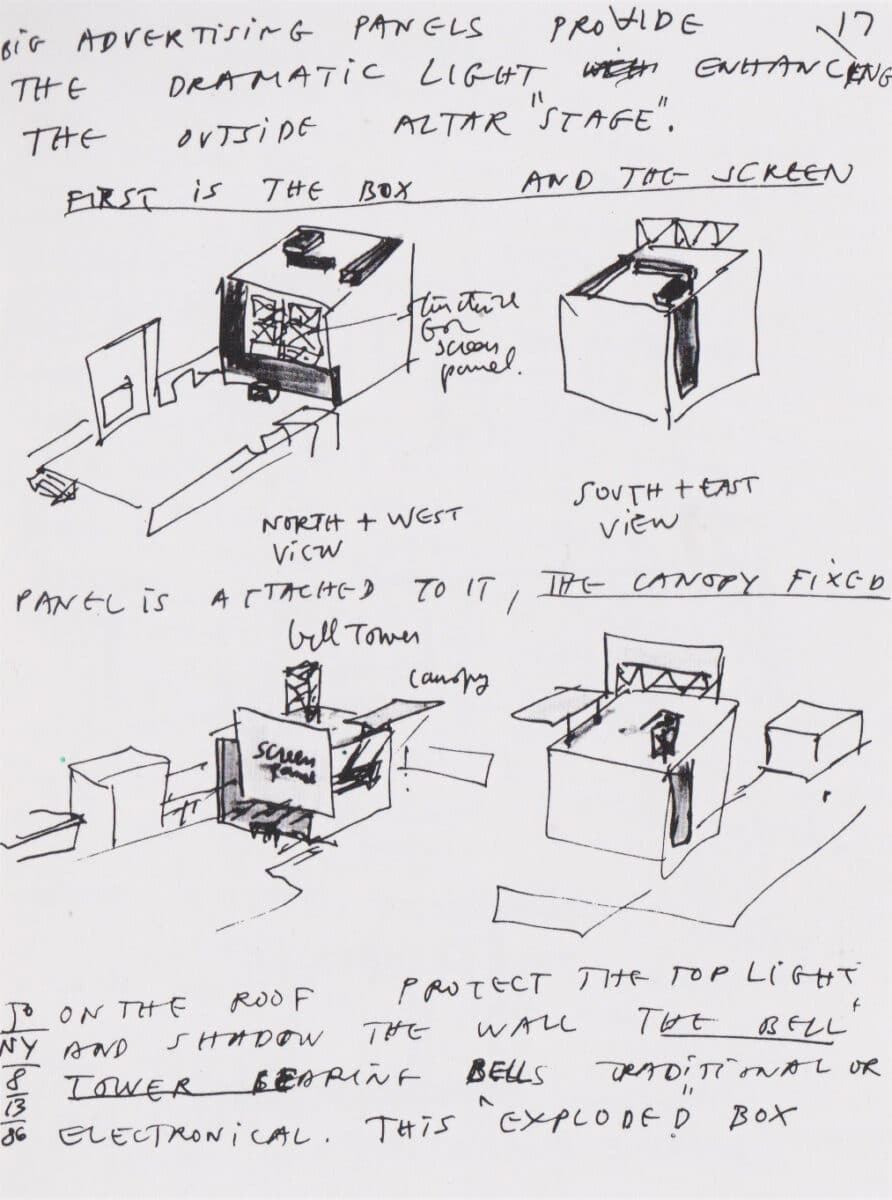 17
BIG ADVERTISING PANELS PROVIDE
THE DRAMATIC LIGHT ENHANCING
THE OUTSIDE ALTAR "STAGE".
FIRST IS THE BOX AND THE SCREEN
structure
for
screen
panel.
NORTH + WEST
VIEW
SOUTH + EAST
VIEW
PANEL IS ATTACHED TO IT, THE CANOPY FIXED
bell Tower
canopy
screen
panel
ON THE ROOF PROTECT THE TOP LIGHT
AND SHADOW THE WALL THE BELL
TOWER BEARING BELLS TRADITIONAL OR
ELECTRONICAL. THIS "EXPLODED" BOX
NY
8
13
86